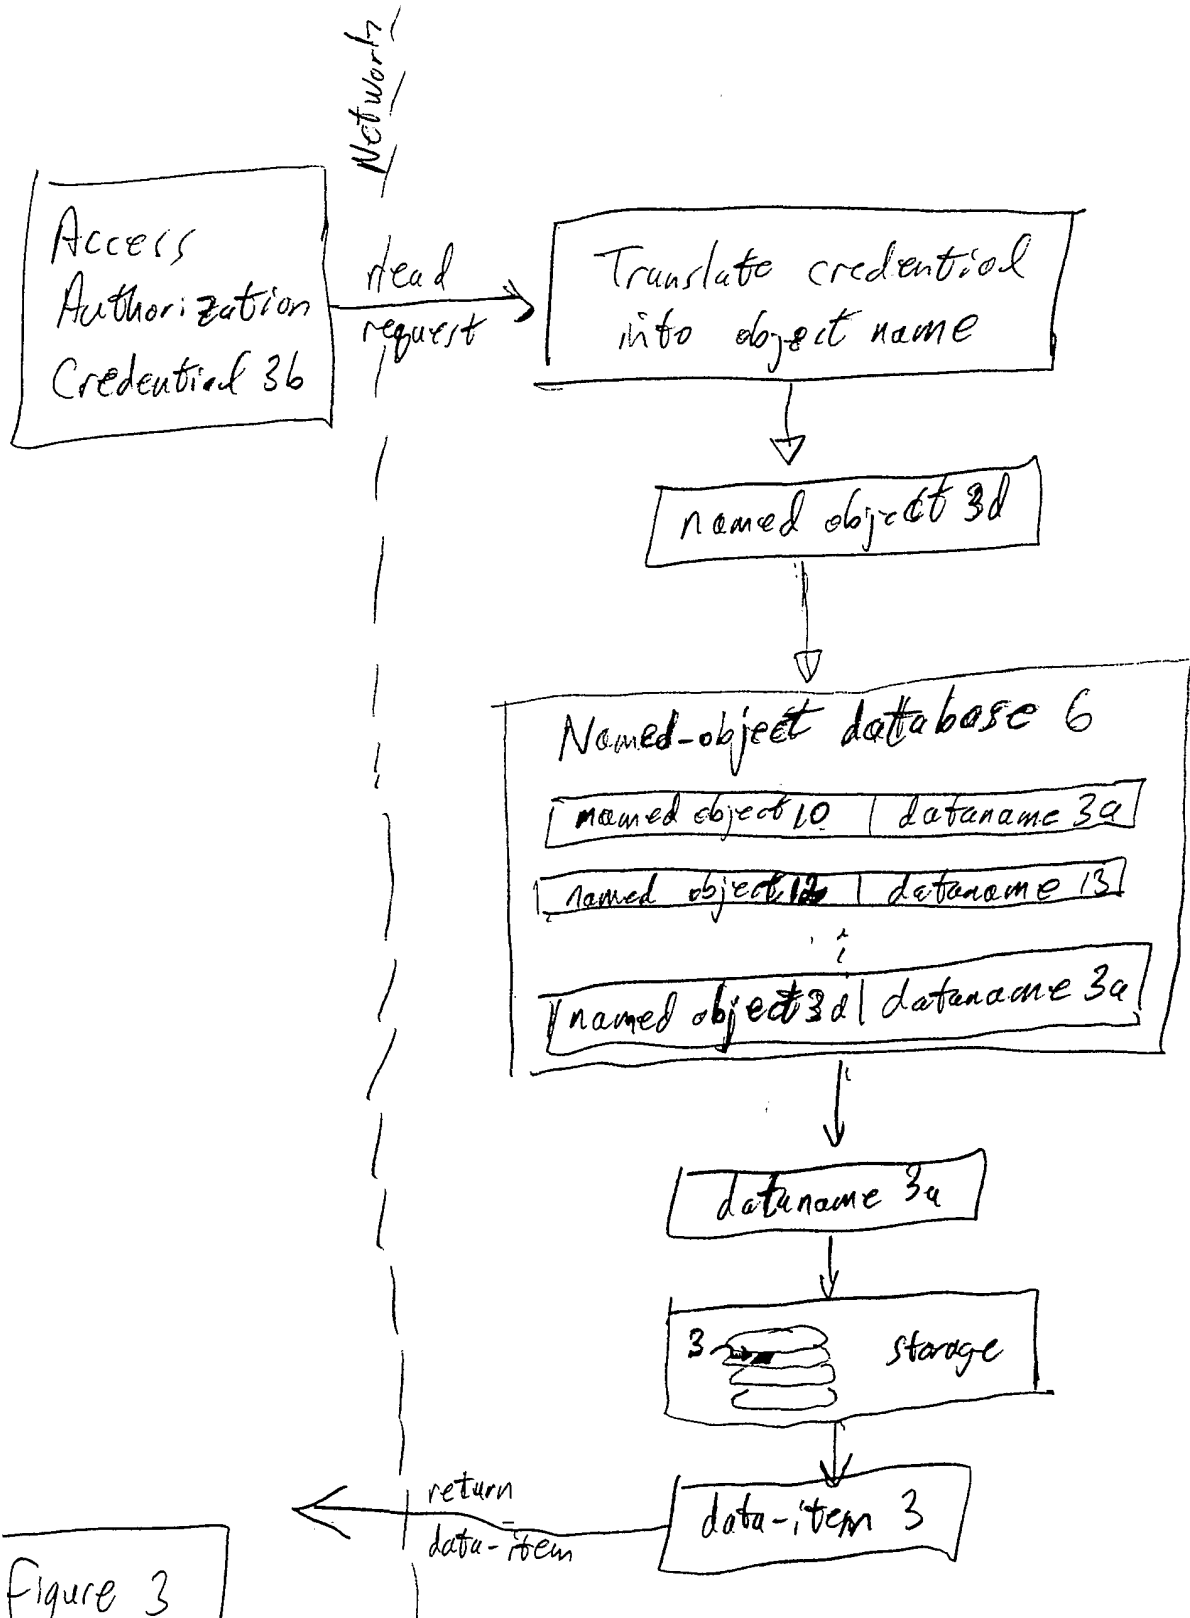 Network
Access
Authorization
Credential 3b
read
request
Translate credential
into object name
named object 3d
Named-object database 6
named object 10 dataname 3a
named object 12 dataname 13
named object 3d dataname 3a
dataname 3a
3 storage
data-item 3
return
data-item
Figure 3